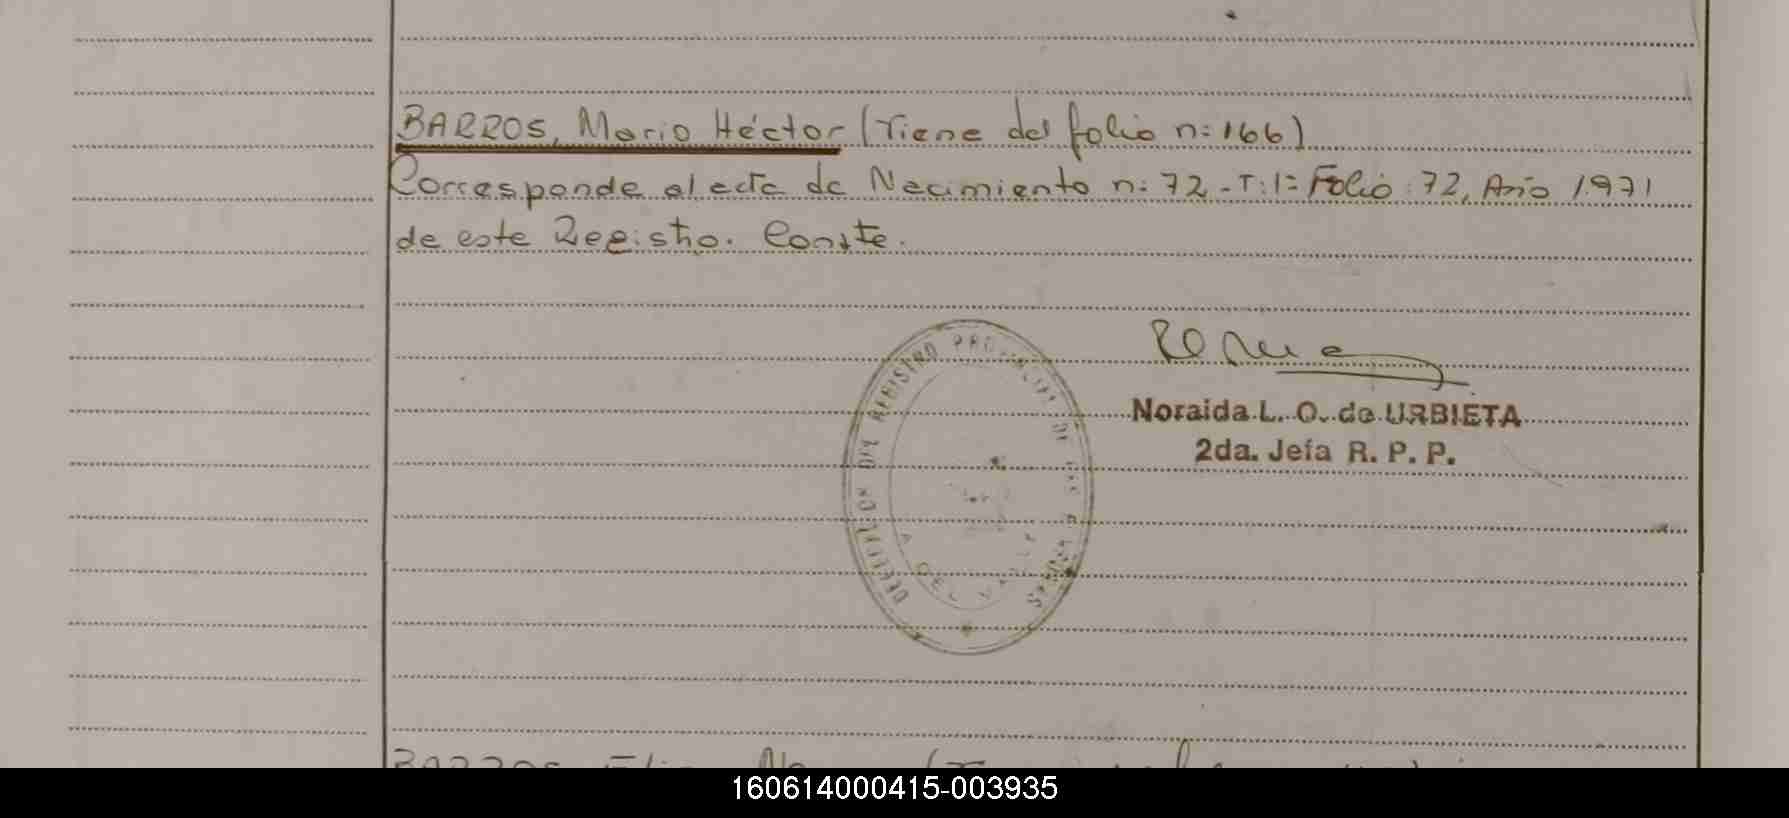 BARROS, Mario Héctor (Viene del folio n: 166)
Corresponde al acta de Nacimiento n: 72 - T: 1= Folio: 72, Año 1971
de este Registro. Conste.
Noraida L. O. de URBIETA
2da. Jefa R. P. P.
DIRECCION DEL REGISTRO PROVINCIAL DE LAS PERSONAS
DEL VALLE
BARROS
160614000415-003935